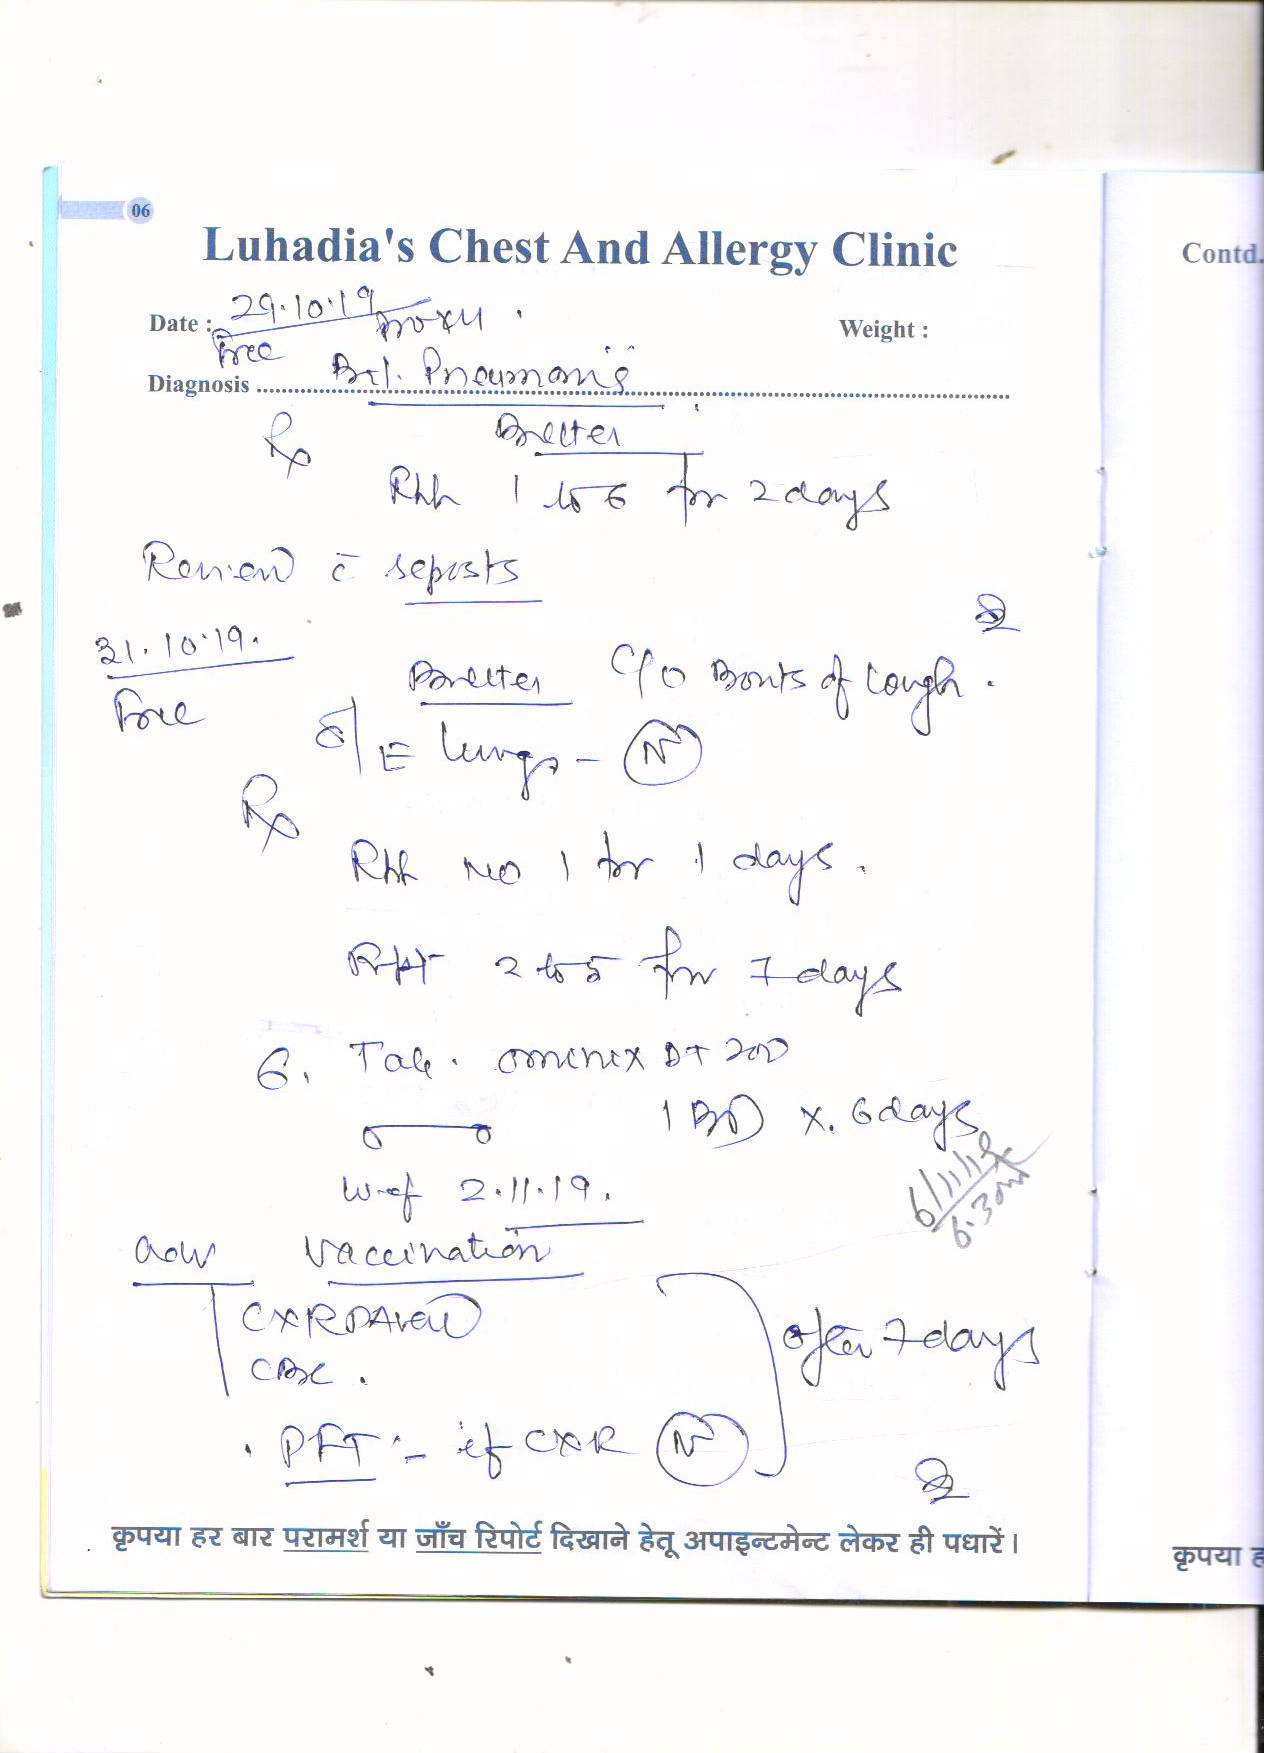 06
Luhadia's Chest And Allergy Clinic
Contd.
Date : 29.10.19
Weight :
Free
Diagnosis Pneumonia
Rx Better
1 to 6 for 2 days
Review c̄ reports
31.10.19.
Better C/o Bouts of cough.
Free
O/E lungs - N
Rx
No 1 for 1 days.
2 to 5 for 7 days
6. Tab. Omnix DT 200
1 BD x. 6 days
w.ef 2.11.19.
6/11/19
6.30
Adv Vaccination
CXR PA view
CBC.
after 7 days
. PFT :- if CXR N
कृपया हर बार परामर्श या जाँच रिपोर्ट दिखाने हेतू अपाइन्टमेन्ट लेकर ही पधारें।
कृपया ह